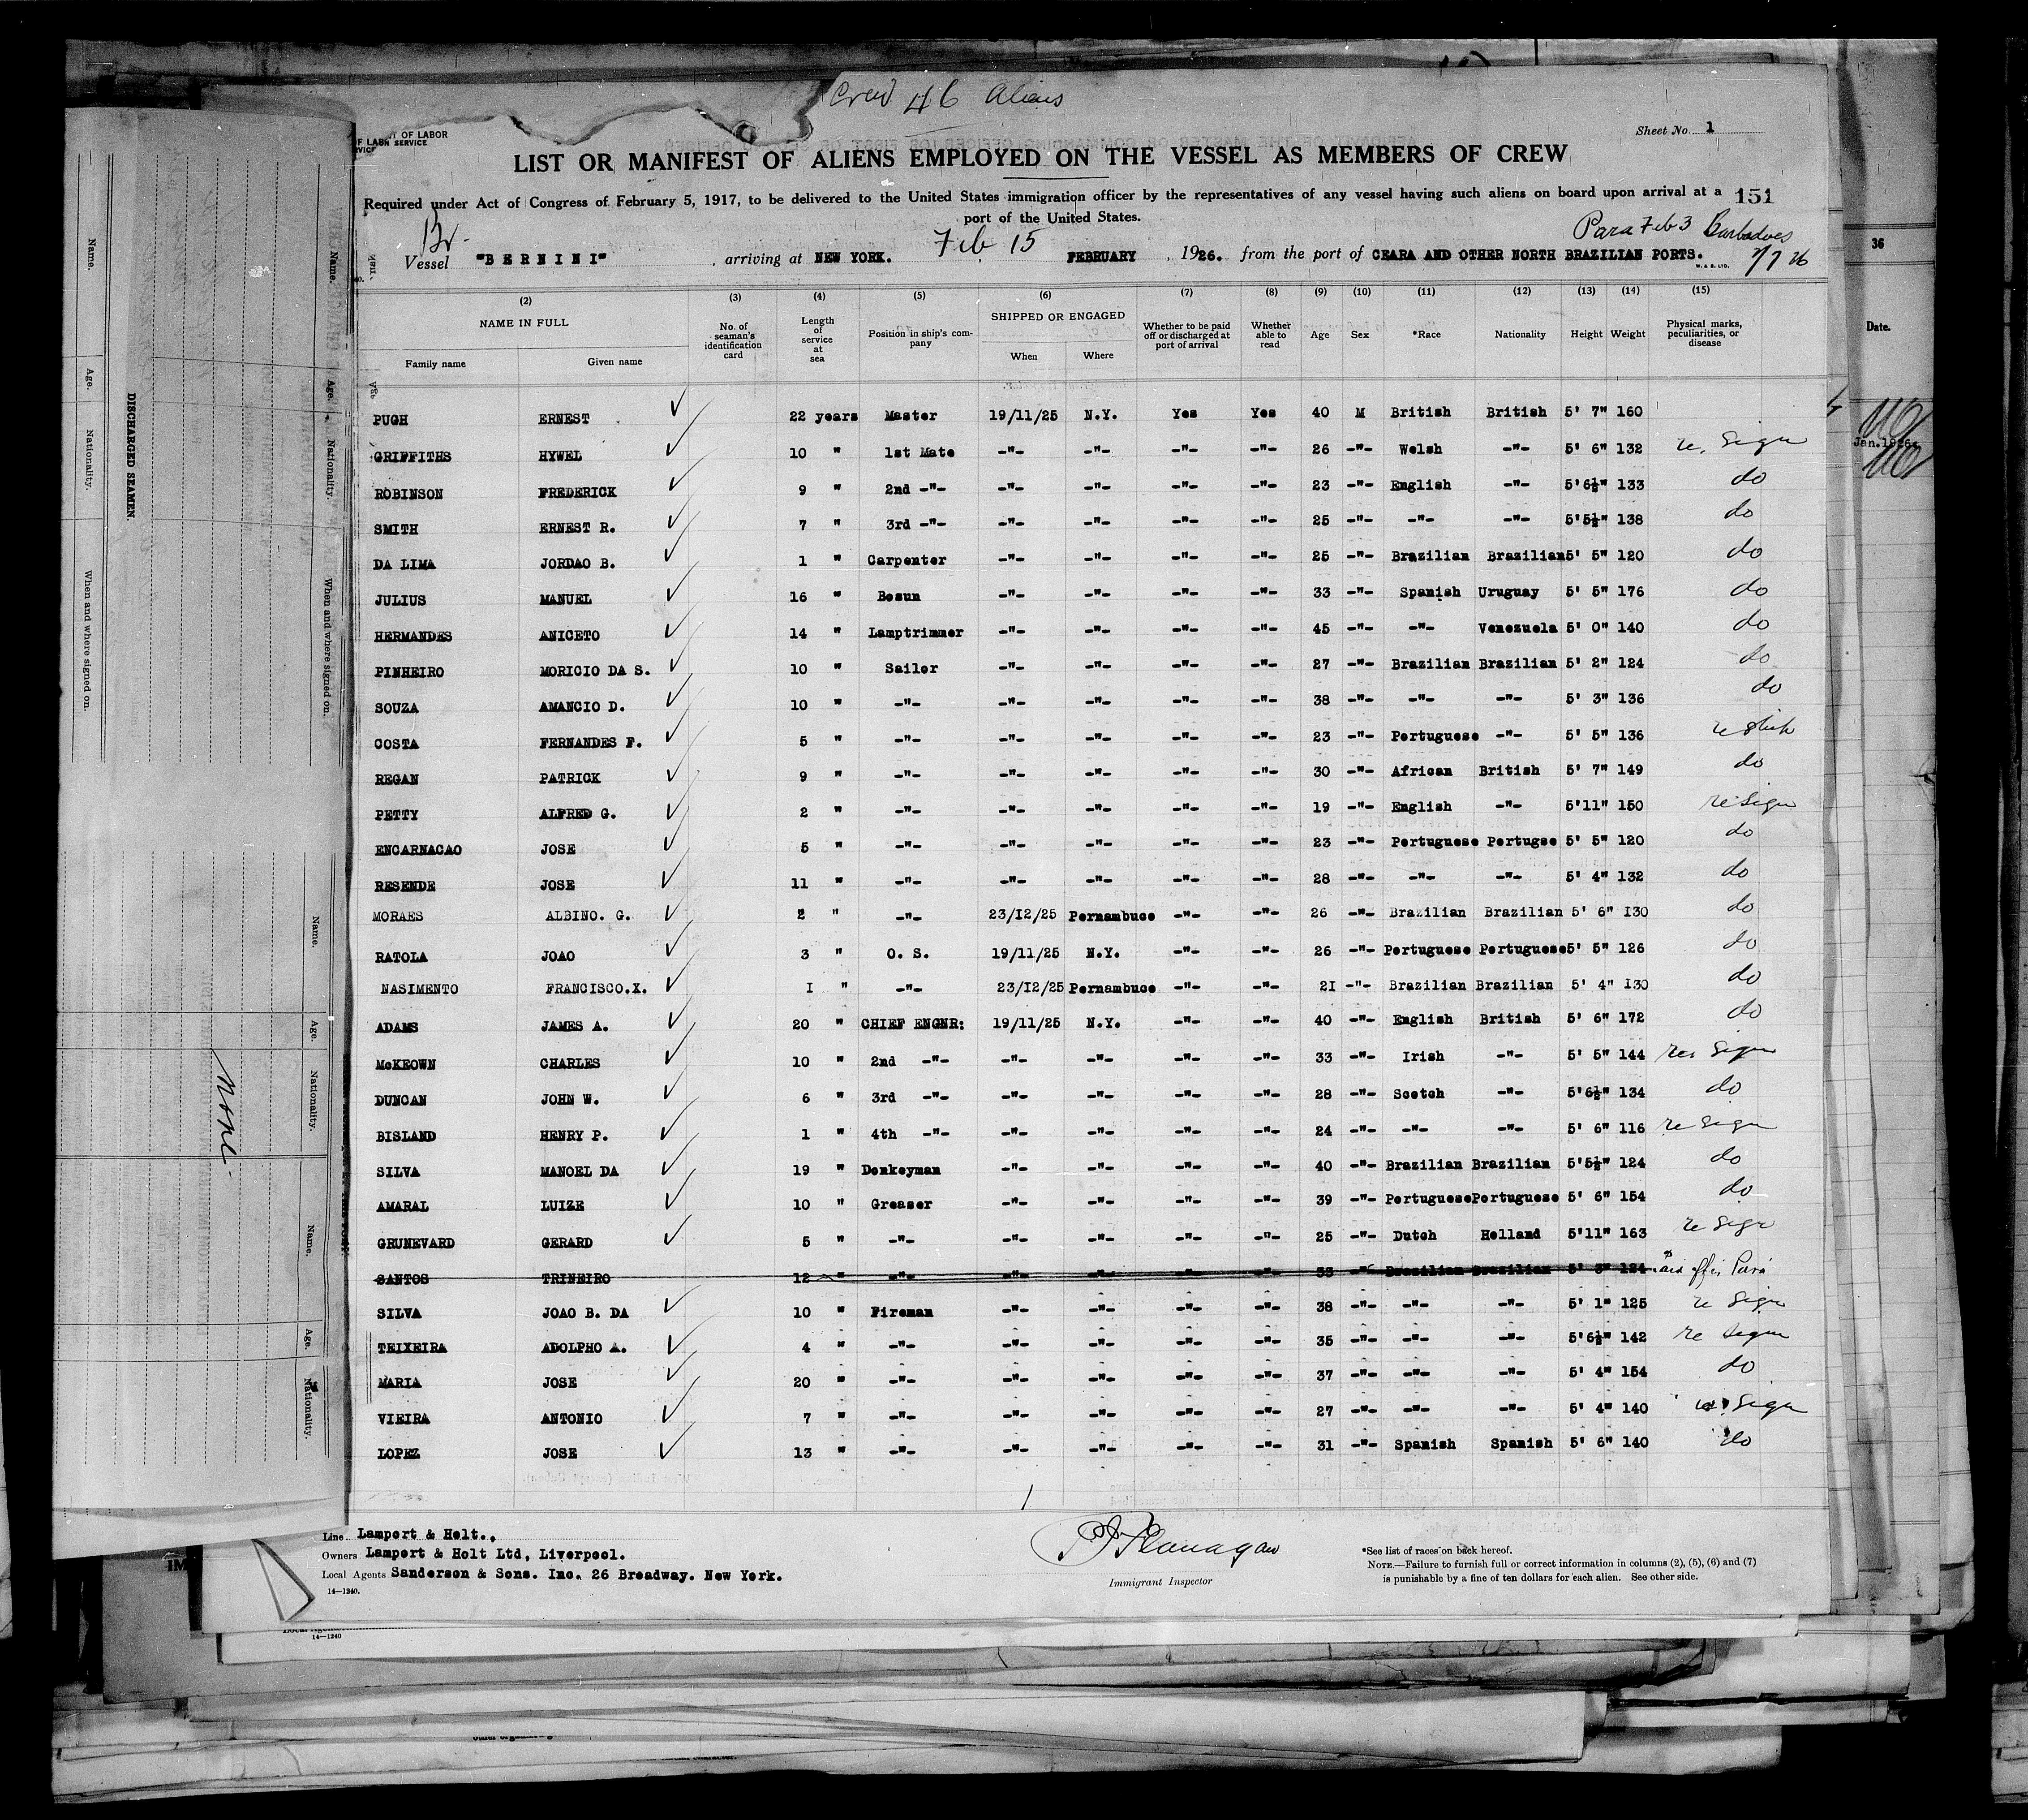 Crew 46 Aliens
T OF LABOR
N SERVICE
Sheet No. 1
LIST OR MANIFEST OF ALIENS EMPLOYED ON THE VESSEL AS MEMBERS OF CREW
Required under Act of Congress of February 5, 1917, to be delivered to the United States immigration officer by the representatives of any vessel having such aliens on board upon arrival at a 151
port of the United States.
Br. Feb 15 Para Feb 3 Barbadoes
Vessel "BERNINI", arriving at NEW YORK. FEBRUARY, 1926. from the port of CEARA AND OTHER NORTH BRAZILIAN PORTS. 2/7 26
(2) (3) (4) (5) (6) (7) (8) (9) (10) (11) (12) (13) (14) (15)
NAME IN FULL
Family name Given name
No. of seaman's identification card
Length of service at sea
Position in ship's company
SHIPPED OR ENGAGED
When Where
Whether to be paid off or discharged at port of arrival
Whether able to read
Age Sex *Race Nationality Height Weight
Physical marks, peculiarities, or disease
PUGH ERNEST 22 years Master 19/11/25 N.Y. Yes Yes 40 M British British 5' 7" 160
GRIFFITHS HYWEL 10 " 1st Mate -"- -"- -"- -"- 26 -"- Welsh -"- 5' 6" 132 re. Sign
ROBINSON FREDERICK 9 " 2nd -"- -"- -"- -"- -"- 23 -"- English -"- 5'6½" 133 do
SMITH ERNEST R. 7 " 3rd -"- -"- -"- -"- -"- 25 -"- -"- -"- 5'5½" 138 do
DA LIMA JORDAO B. 1 " Carpenter -"- -"- -"- -"- 25 -"- Brazilian Brazilian 5' 5" 120 do
JULIUS MANUEL 16 " Bosun -"- -"- -"- -"- 33 -"- Spanish Uruguay 5' 5" 176 do
HERMANDES ANICETO 14 " Lamptrimmer -"- -"- -"- -"- 45 -"- -"- Venezuela 5' 0" 140 do
PINHEIRO MORICIO DA S. 10 " Sailor -"- -"- -"- -"- 27 -"- Brazilian Brazilian 5' 2" 124 do
SOUZA AMANCIO D. 10 " -"- -"- -"- -"- -"- 38 -"- -"- -"- 5' 3" 136 do
COSTA FERNANDES F. 5 " -"- -"- -"- -"- -"- 23 -"- Portuguese -"- 5' 5" 136 re
REGAN PATRICK 9 " -"- -"- -"- -"- -"- 30 -"- African British 5' 7" 149 do
PETTY ALFRED G. 2 " -"- -"- -"- -"- -"- 19 -"- English -"- 5'11" 150 re Sign
ENCARNACAO JOSE 5 " -"- -"- -"- -"- -"- 23 -"- Portuguese Portugse 5' 5" 120 do
RESENDE JOSE 11 " -"- -"- -"- -"- -"- 28 -"- -"- -"- 5' 4" 132 do
MORAES ALBINO. G. 2 " -"- 23/I2/25 Pernambuco -"- -"- 26 -"- Brazilian Brazilian 5' 6" I30 do
RATOLA JOAO 3 " O. S. 19/11/25 N.Y. -"- -"- 26 -"- Portuguese Portuguese 5' 5" 126 do
NASIMENTO FRANCISCO.X. I " -"- 23/I2/25 Pernambuco -"- -"- 2I -"- Brazilian Brazilian 5' 4" I30 do
ADAMS JAMES A. 20 " CHIEF ENGNR: 19/11/25 N.Y. -"- -"- 40 -"- English British 5' 6" 172 do
McKEOWN CHARLES 10 " 2nd -"- -"- -"- -"- -"- 33 -"- Irish -"- 5' 5" 144 re Sign
DUNCAN JOHN W. 6 " 3rd -"- -"- -"- -"- -"- 28 -"- Scotch -"- 5'6½" 134 do
BISLAND HENRY P. 1 " 4th -"- -"- -"- -"- -"- 24 -"- -"- -"- 5' 6" 116 re Sign
SILVA MANOEL DA 19 " Donkeyman -"- -"- -"- -"- 40 -"- Brazilian Brazilian 5'5½" 124 do
AMARAL LUIZE 10 " Greaser -"- -"- -"- -"- 39 -"- Portuguese Portuguese 5' 6" 154 do
GRUNEVARD GERARD 5 " -"- -"- -"- -"- -"- 25 -"- Dutch Holland 5'11" 163 re Sign
SANTOS TRINEIRO 12 " -"- -"- -"- -"- -"- 35 -"- Brazilian Brazilian 5' 3" 124 Paid off in Para
SILVA JOAO B. DA 10 " Fireman -"- -"- -"- -"- 38 -"- -"- -"- 5' 1" 125 re Sign
TEIXEIRA ADOLPHO A. 4 " -"- -"- -"- -"- -"- 35 -"- -"- -"- 5'6½" 142 re Sign
MARIA JOSE 20 " -"- -"- -"- -"- -"- 37 -"- -"- -"- 5' 4" 154 do
VIEIRA ANTONIO 7 " -"- -"- -"- -"- -"- 27 -"- -"- -"- 5' 4" 140 re Sign
LOPEZ JOSE 13 " -"- -"- -"- -"- -"- 31 -"- Spanish Spanish 5' 6" 140 do
Line Lamport & Holt.,
Owners Lamport & Holt Ltd, Liverpool.
Local Agents Sanderson & Sons. Inc. 26 Broadway. New York.
14—1240.
P J Flanagan
Immigrant Inspector
*See list of races on back hereof.
NOTE.—Failure to furnish full or correct information in columns (2), (5), (6) and (7)
is punishable by a fine of ten dollars for each alien. See other side.
14—1240
DISCHARGED SEAMEN.
Name. Age. Nationality. When and where signed on.
Name. Age. Nationality. When and where signed on.
Name. Age. Nationality.
Name. Age. Nationality.
None
36
Date.
Jan. 1926